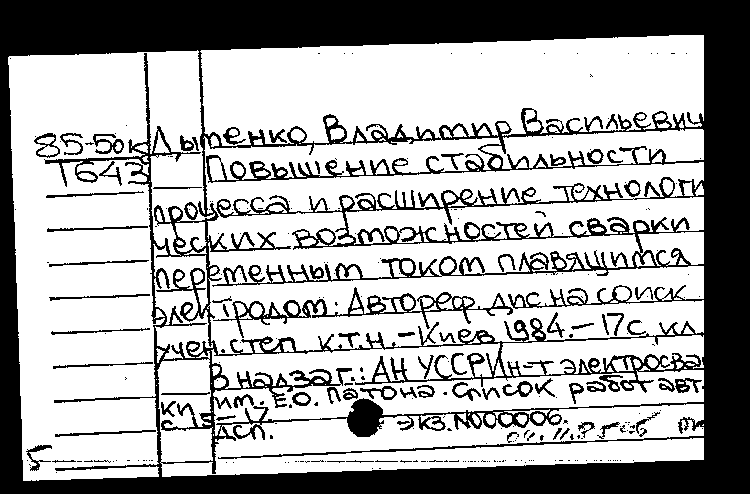 85-5ок Дытенко, Владимир Васильевич
Т643 Повышение стабильности
процесса и расширение технологи
ческих возможностей сварки
переменным током плавящимся
электродом: Автореф. дис. на соиск
учен. степ. к.т.н. - Киев, 1984. - 17с, ил.
В надзаг.: АН УССР, Ин-т электросва
им. Е.О. Патона. Список работ авт.
с 15-17.
КП АСП. экз. N000006.
5